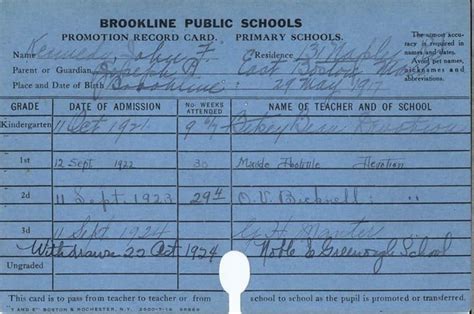 BROOKLINE PUBLIC SCHOOLS
PROMOTION RECORD CARD. PRIMARY SCHOOLS.
The utmost accuracy is required in names and dates. Avoid pet names, nicknames and abbreviations.
Name Kennedy, John F. Residence 131 Naples
Parent or Guardian Joseph P.
Place and Date of Birth Brookline 29 May 1917
GRADE DATE OF ADMISSION No. WEEKS ATTENDED NAME OF TEACHER AND OF SCHOOL
Kindergarten 11 Oct 1921 9
1st 12 Sept 1922 30 Devotion
2d 11 Sept. 1923 29 4 O.V. Bicknell " "
3d 11 Sept 1924 G. H. Manter " "
Withdrawn 22 Oct 1924 Noble & Greenough School
Ungraded
This card is to pass from teacher to teacher or from school to school as the pupil is promoted or transferred.
"T AND R" BOSTON & ROCHESTER, N.Y.